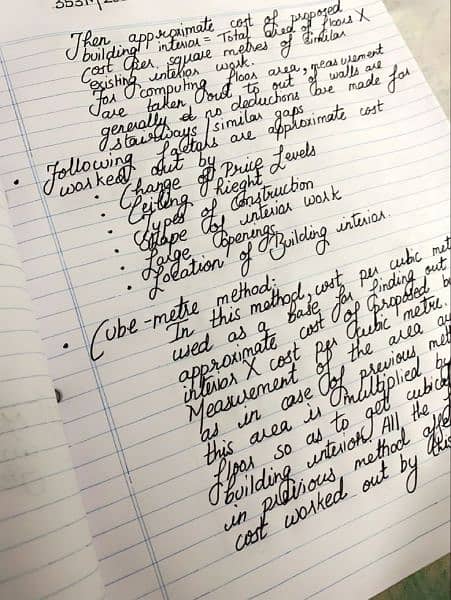 Then approximate cost of proposed
building interior = Total area of floors X
Cost per square metres of similar
existing interior work.
For computing floor area, measurement
are taken out to out of walls are
generally & no deductions are made for
stairways / similar gaps
• Following factors are approximate cost
worked out by
• Change of Price Levels
• Ceiling Height
• Types of Construction
• Shape of interior work
• Large Openings
• Location of Building interior.
• Cube-metre method:
In this method, cost per cubic met
used as a base for finding out
approximate cost of proposed b
interior X cost per cubic metre.
Measurement of the area
as in case of previous met
this area is multiplied by
floor so as to get cubica
building interior. All the
in previous method affe
cost worked out by this